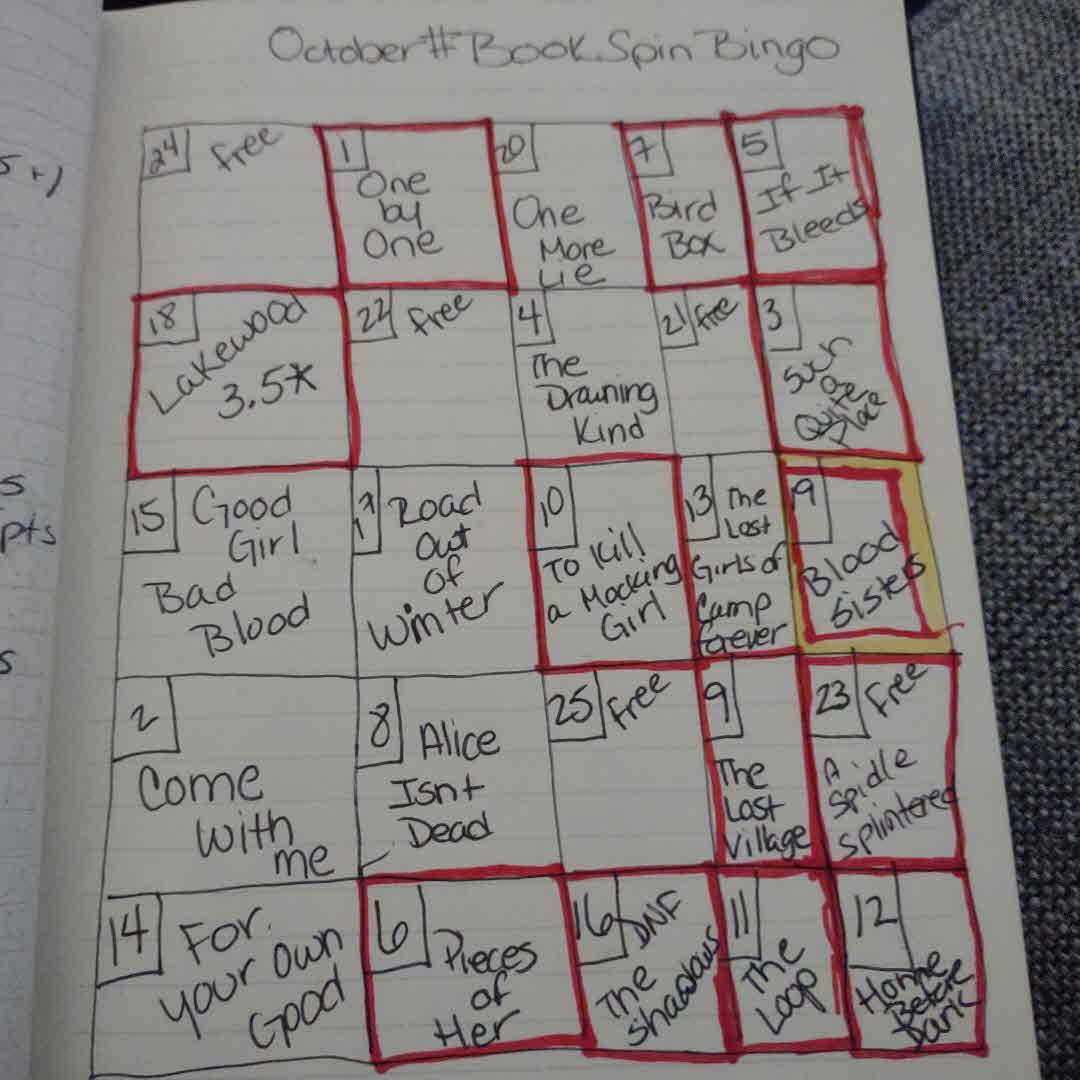 October #BookSpinBingo
24 Free
1
One
by
One
20
One
More
Lie
7
Bird
Box
5
If It
Bleeds
18
Lakewood
3.5*
22 Free
4
The
Drowning
Kind
21 Free
3
Such
a
Quite
Place
15 Good
Girl
Bad
Blood
Road
Out
Of
Winter
10
To Kill
a Mocking
Girl
13 The
Lost
Girls of
Camp
Forever
19
Blood
Sisters
2
Come
With
me
8 Alice
Isnt
Dead
25 Free
9
The
Lost
Village
23 Free
A
Spidle
Splintered
14 For
your own
Good
6 Pieces
of
Her
16 DNF
The
Shadows
11
The
Loop
12
Home
Before
Dark
s
pts
s